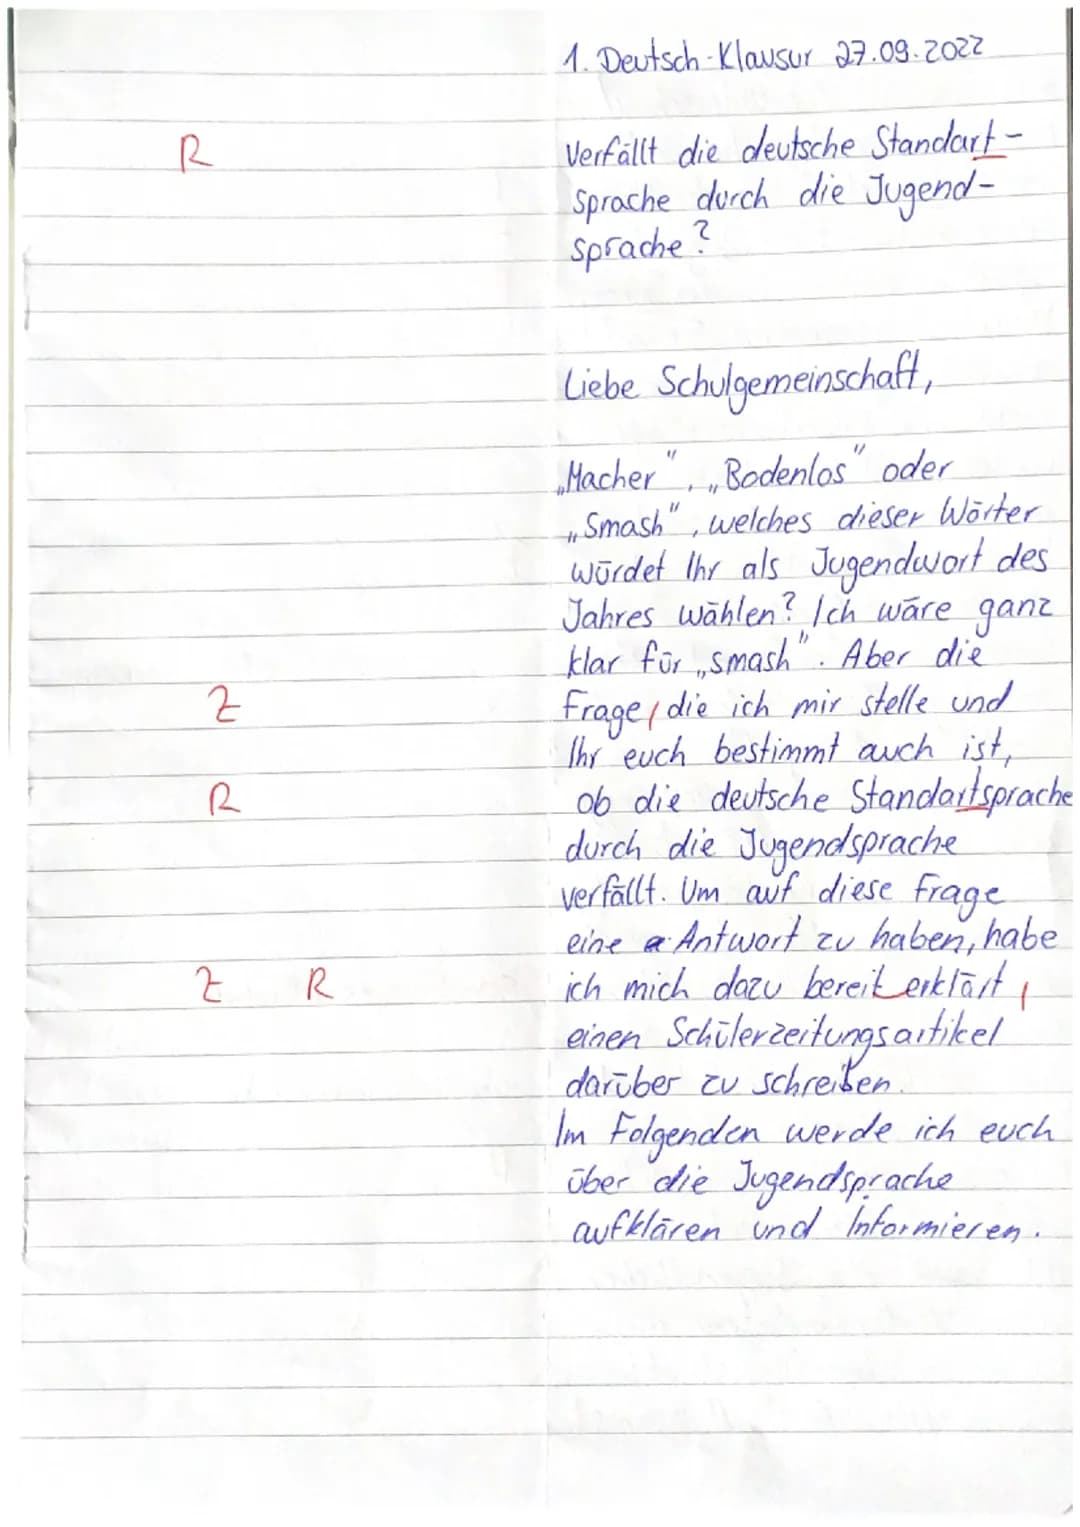 1. Deutsch-Klausur 27.09.2022
R Verfällt die deutsche Standart-
sprache durch die Jugend-
sprache?
Liebe Schulgemeinschaft,
„Macher", „Bodenlos" oder
„Smash", welches dieser Wörter
würdet Ihr als Jugendwort des
Jahres wählen? Ich wäre ganz
klar für „smash". Aber die
Z Frage, die ich mir stelle und
Ihr euch bestimmt auch ist,
R ob die deutsche Standartsprache
durch die Jugendsprache
verfällt. Um auf diese Frage
eine Antwort zu haben, habe
Z R ich mich dazu bereit erklärt,
einen Schülerzeitungsartikel
darüber zu schreiben.
Im Folgenden werde ich euch
über die Jugendsprache
aufklären und Informieren.